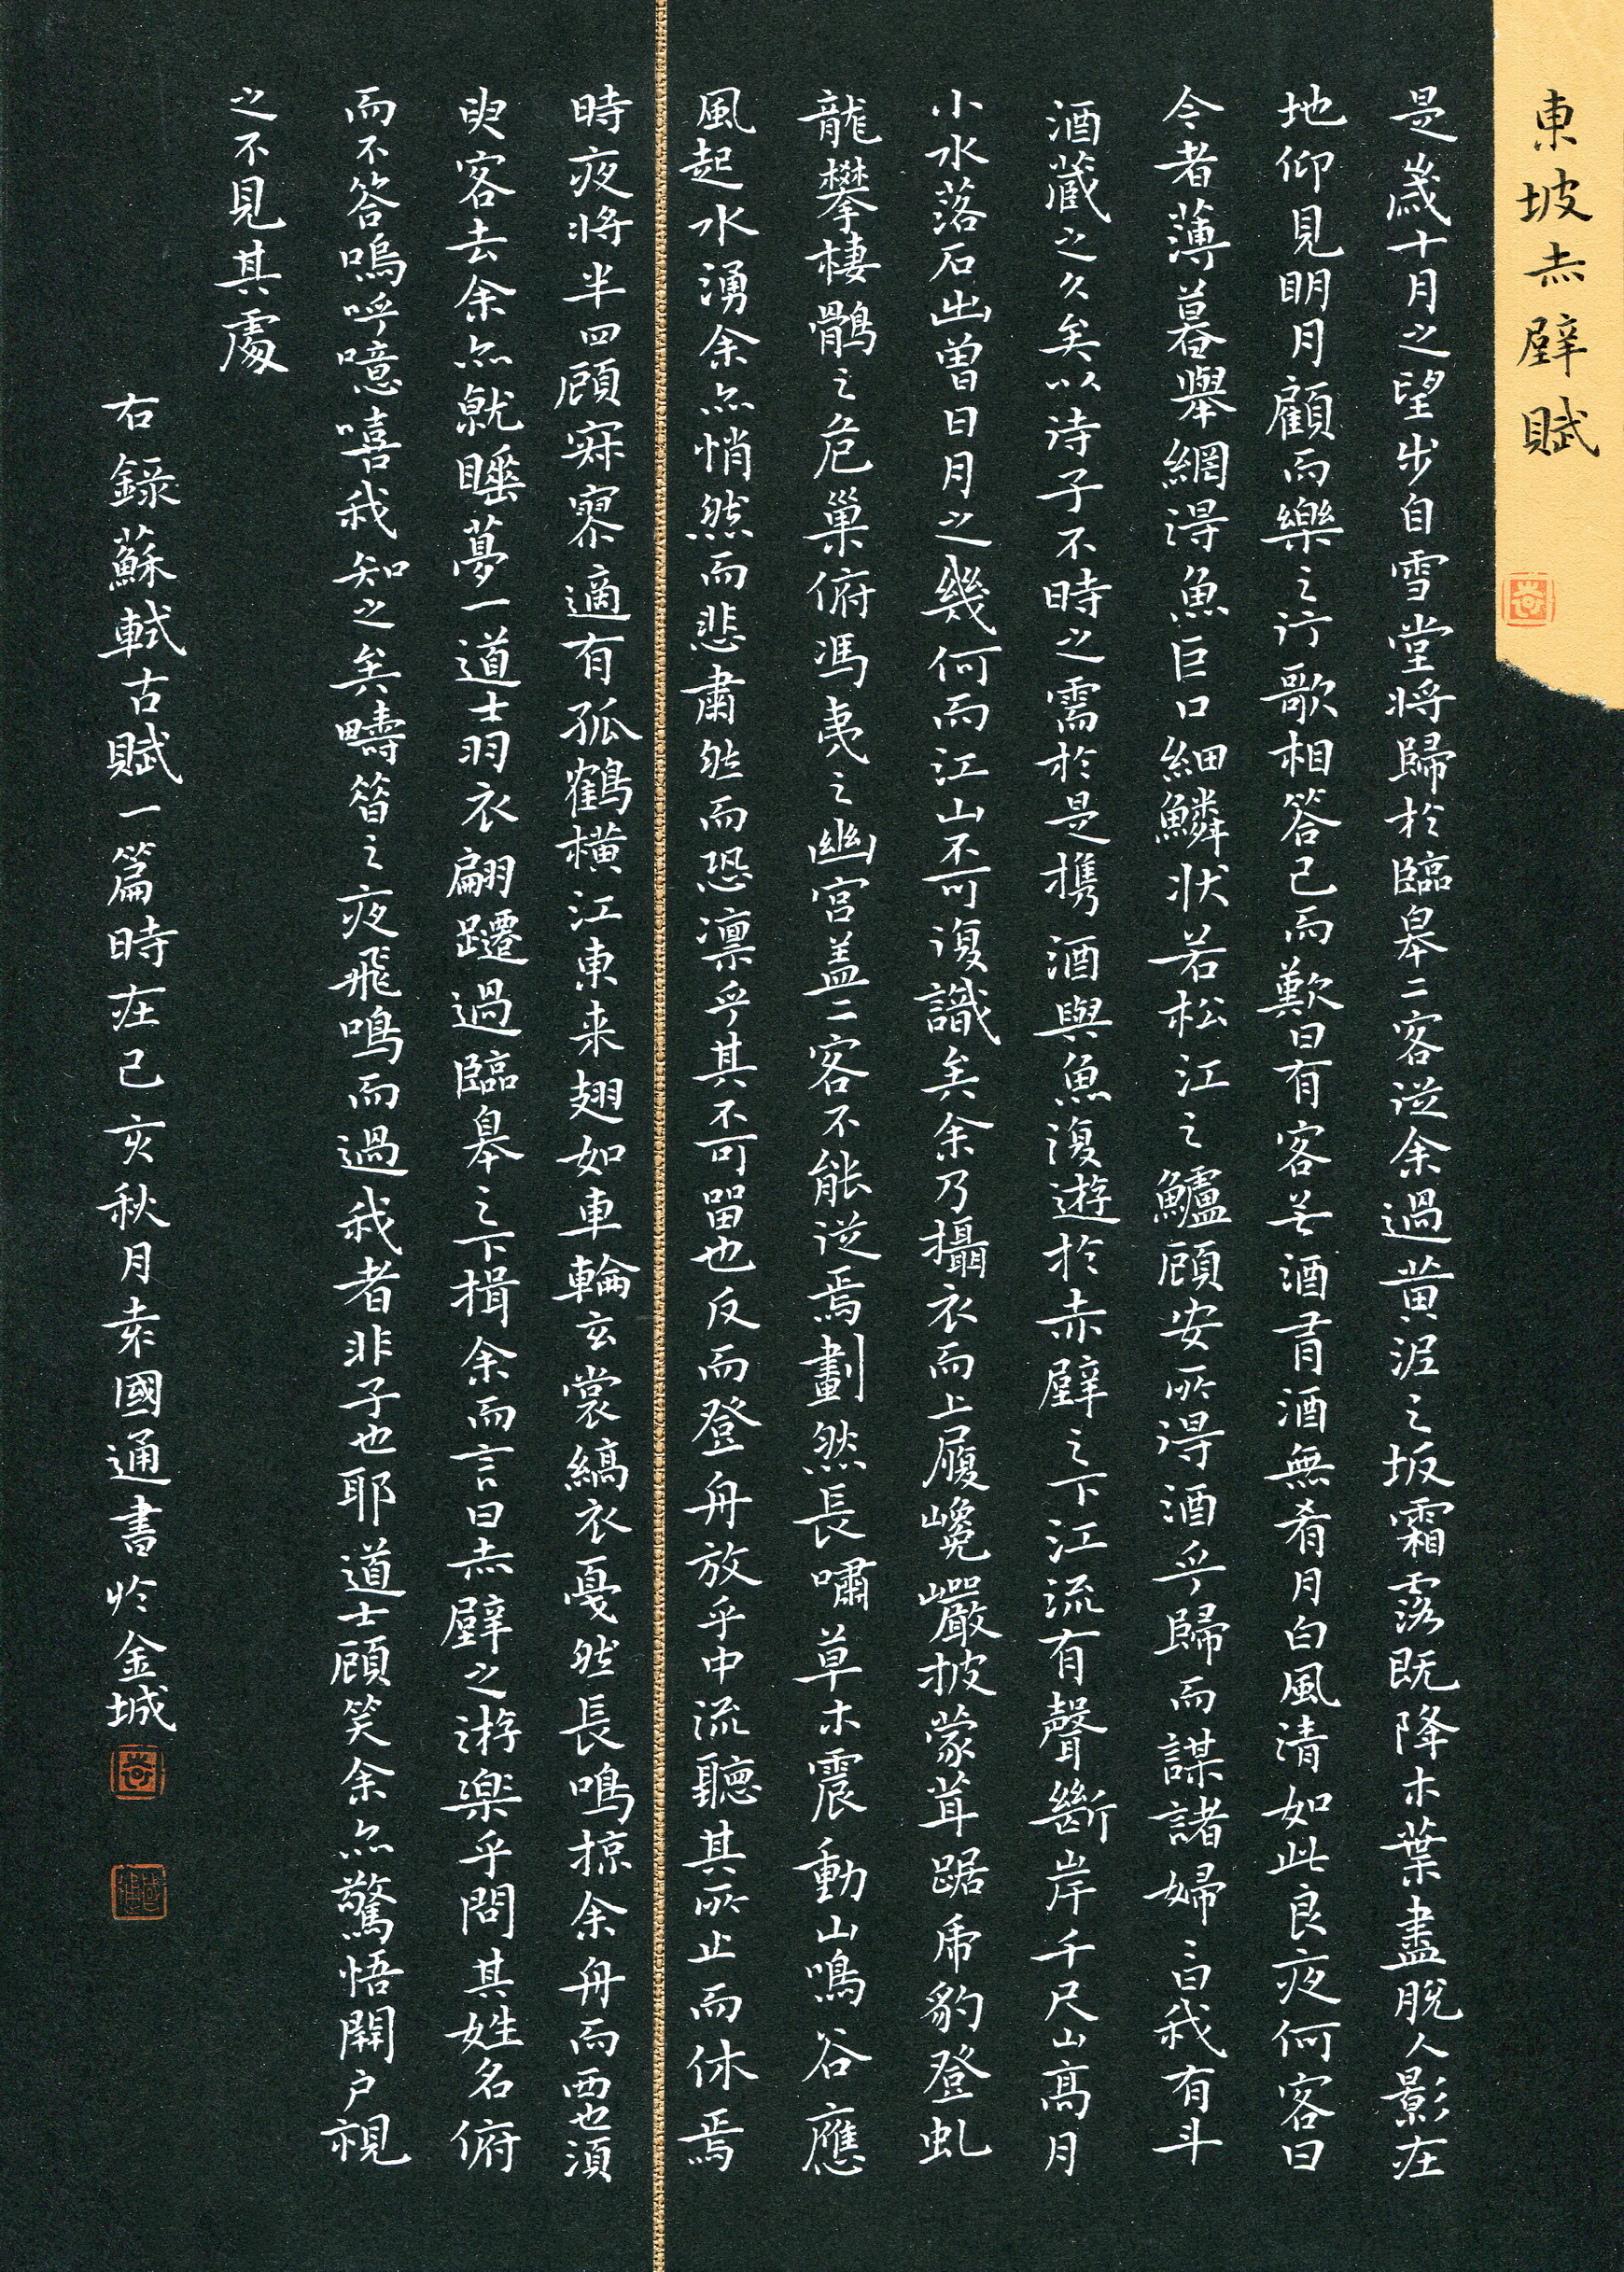 東坡赤壁賦
是歲十月之望步自雪堂將歸於臨皋二客從余過黄泥之坂霜露既降木葉盡脫人影在
地仰見明月顧而樂之行歌相答已而歎曰有客無酒有酒無肴月白風清如此良夜何客曰
今者薄暮舉網得魚巨口細鱗状若松江之鱸顧安所得酒乎歸而謀諸婦婦曰我有斗
酒藏之久矣以待子不時之需於是攜酒與魚復遊於赤壁之下江流有聲斷岸千尺山高月
小水落石出曾日月之幾何而江山不可復識矣余乃攝衣而上履巉巖披蒙茸踞虎豹登虬
龍攀棲鶻之危巢俯馮夷之幽宮盖二客不能從焉劃然長嘯草木震動山鳴谷應
風起水湧余亦悄然而悲肅然而恐凛乎其不可留也反而登舟放乎中流聽其所止而休焉
時夜將半四顧寂寥適有孤鶴橫江東来翅如車輪玄裳縞衣戛然長鳴掠余舟而西也須
臾客去余亦就睡夢一道士羽衣翩躚過臨皋之下揖余而言曰赤壁之游樂乎問其姓名俯
而不答嗚呼噫嘻我知之矣疇昔之夜飛鳴而過我者非子也耶道士顧笑余亦驚悟開户視
之不見其處
右錄蘇軾古賦一篇時在己亥秋月袁國通書於金城